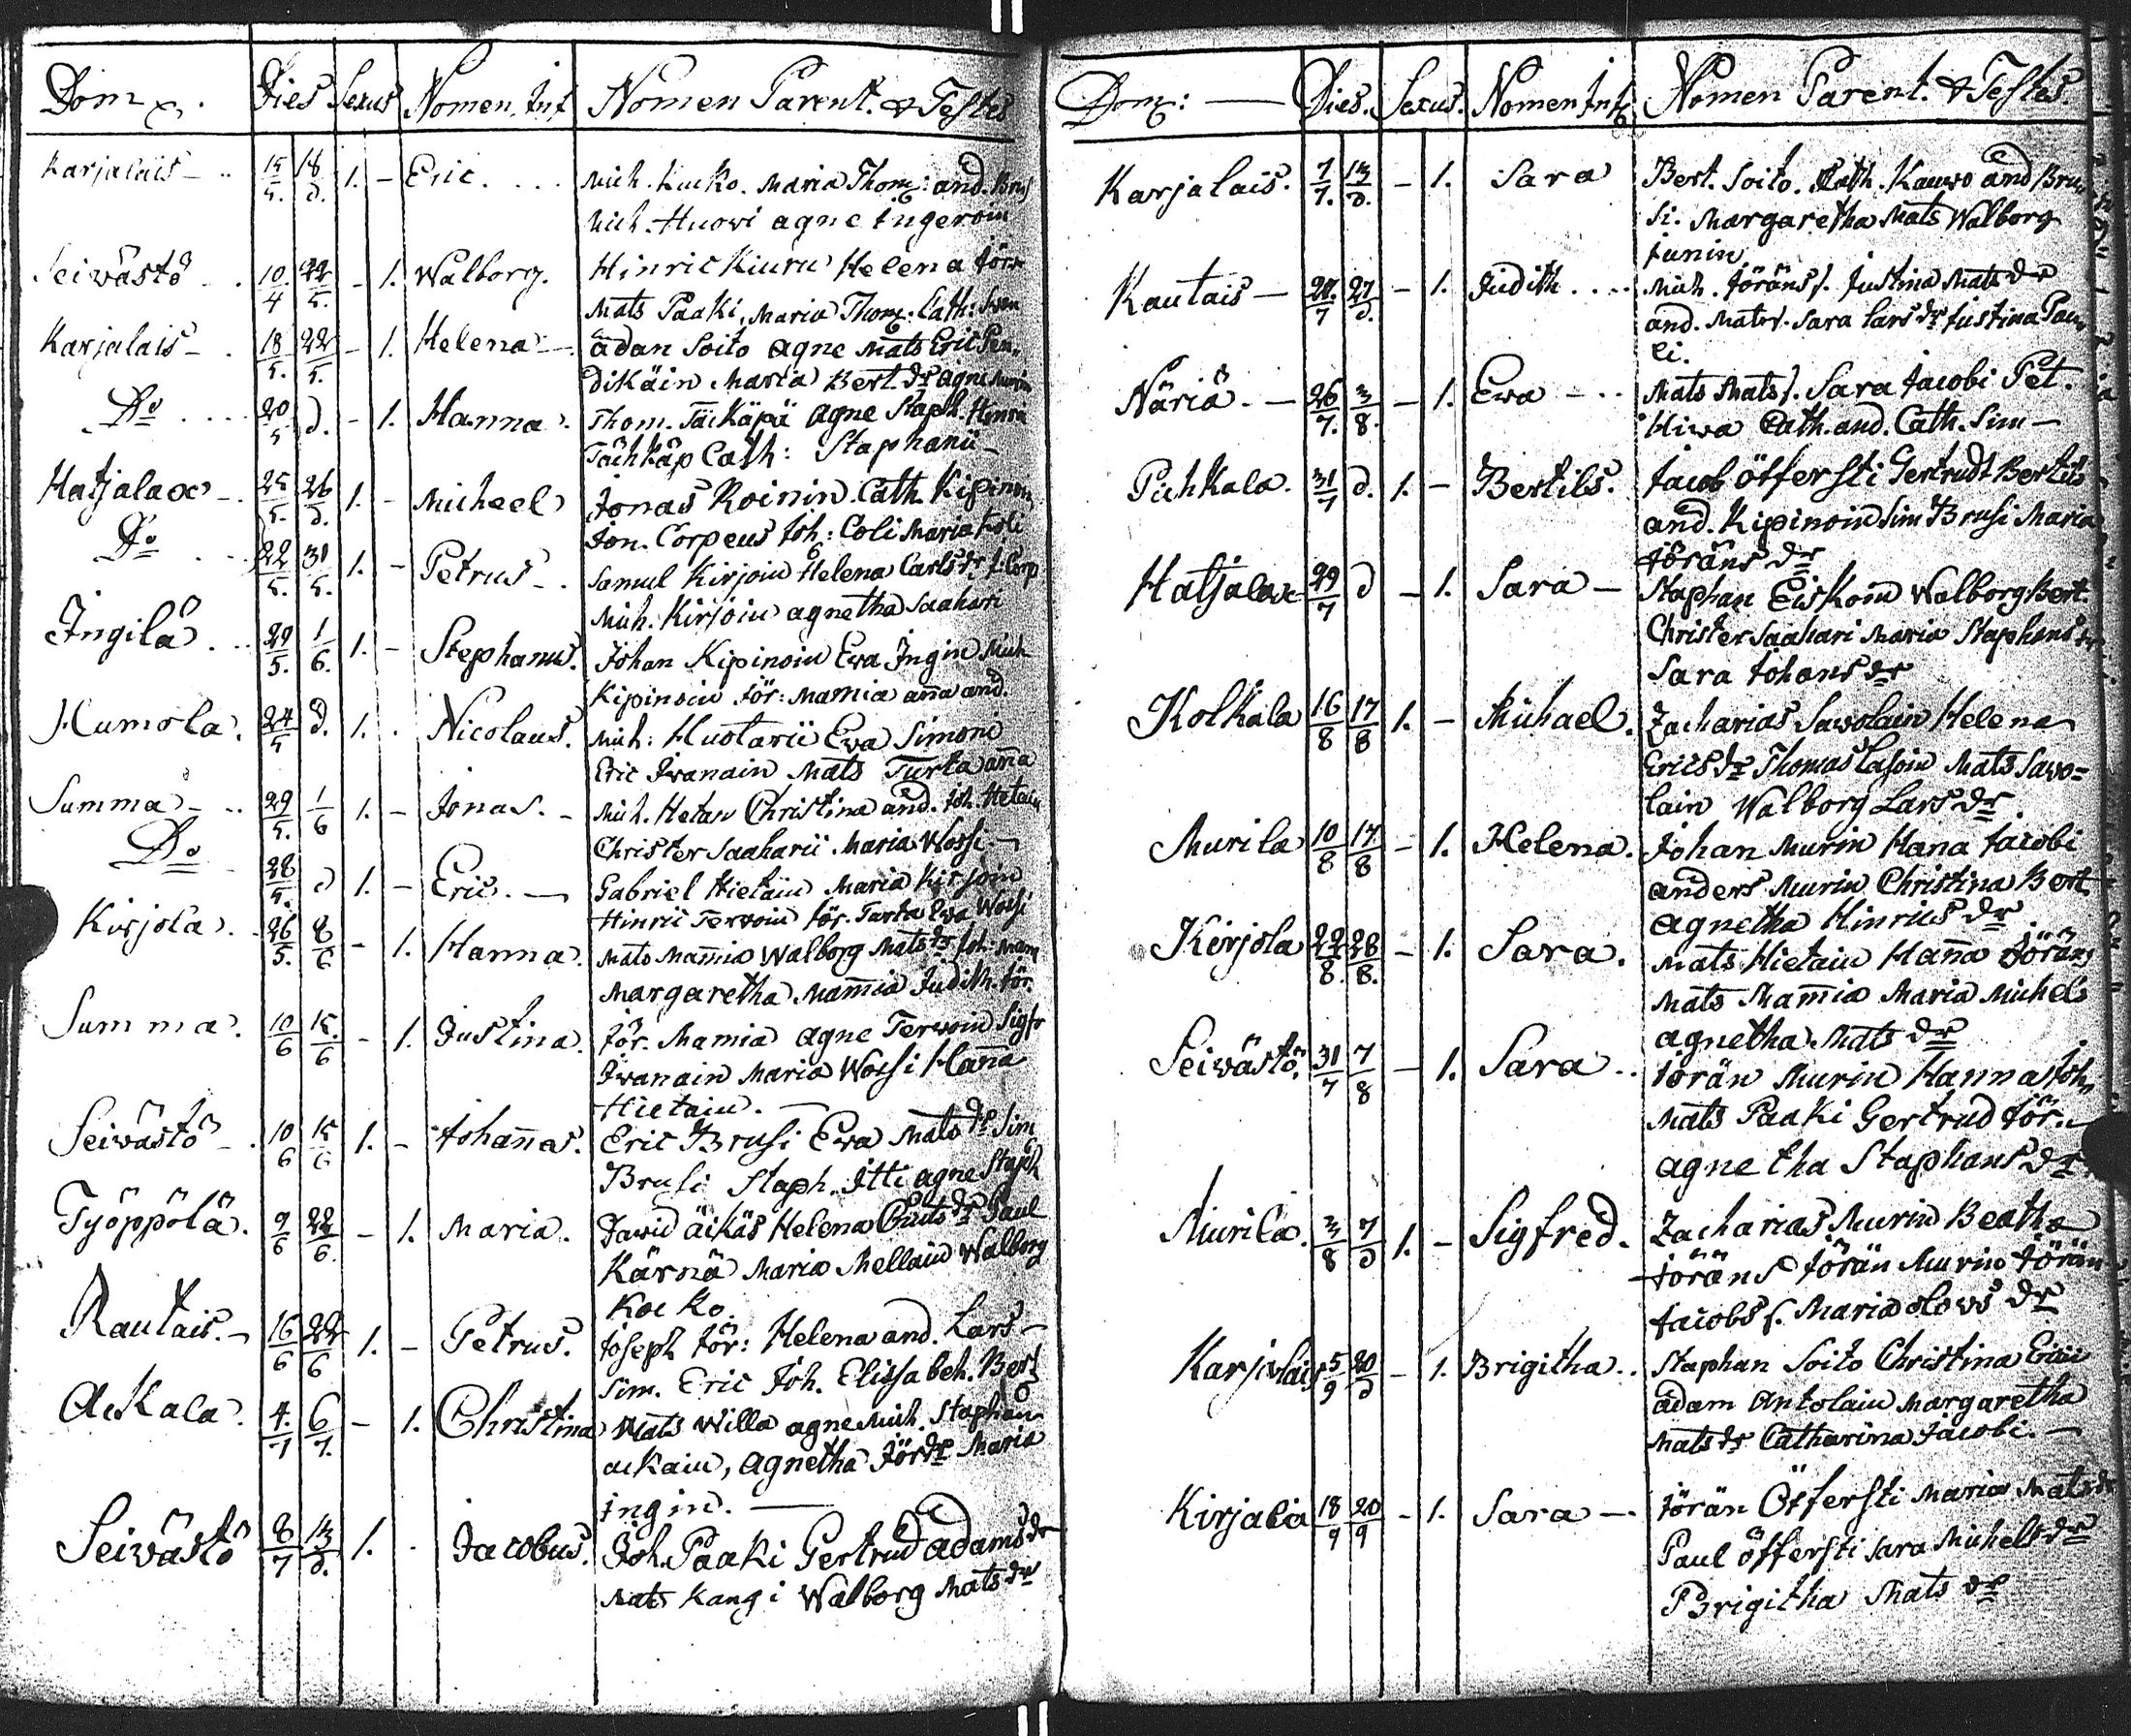 Dom. Dies Sexus Nomen Inf Nomen Parent. & Testes
Karjalais 15/5. 18/d. 1. - Eric. Mich. Kucko. Maria Thom: and. Brus
Mich. Huowi agne ingeroin
Seiwästö 10/4 22/5. - 1. Walborg. Hinric Kiuru Helena Jör
Mats Paaki, Maria Thom: Cath: Swen
Karjalais 18/5. 22/5. - 1. Helena adan Soito agne Mats Eric Pen-
dikäin Maria Bert. dr agne Murin
Do 20/5 d. - 1. Hanna. Thom. Täikäpä agne Staph. Hinric
Täihkäp Cath: Staphanii
Hatjalax 25/5. 26/d. 1. - Michael Jonas Roinin Cath. Kipinoin
Jon. Corpeus Joh: Coli Maria Koli
Do 22/5. 31/5. 1. - Petrus Samul Kirjoin Helena Carls dr J. Corp
Mich. Kirjoin agnetha Saahari
Ingilä 29/5. 1/6. 1. - Stephanus. Johan Kipinoin Ewa Ingin Mich
Kipinoin Jör: Mamia aña and.
Humola. 24/5 d. 1. Nicolaus. Mich: Huotarii Ewa Simoni
Eric Iwanain Mats Turta aña
Summa 29/5. 1/6 1. - Jonas. Mich. Hetan Christina and. Joh. Hetain
Christer Saaharii Maria Wossi
Do 28/5. d 1. - Eric. Gabriel Hietain Maria Kirjoin
Hinric Terwoin Jör. Turta Ewa Wossi
Kirjola. 26/5. 8/6 - 1. Hanna. Mats Mamia Walborg Mats dr Joh: Mam
Margaretha Mamia Judith. Jör.
Summa. 10/6 15./6 - 1. Justina. Jör. Mamia agne Terwoin Sigfr
Iwanain Maria Wossi Hana
Hietain.
Seiwästö 10/6 15/6 1. - Johañas. Eric Brusi Ewa Mats dr Sim
Brusi Staph. Itti agne Staph
Työppölä. 9/6 22/6. - 1. Maria. Dawid äikäs Helena Cnuts dr Paul
Kärnä Maria Mellain Walborg
Kocko.
Rautais. 16/6 22/6 1. - Petrus. Joseph Jör: Helena and. Lars
Sim. Eric Joh. Elissabeh. Bert
Ackala. 4./7 6/7. - 1. Christina Mats Willa agne Mich. Staphan
ackain, agnetha Jör dr Maria
ingin.
Seiwästö 8/7 13/d. 1. Jacobus. Joh. Paaki Gertrud adams dr
Mats Kangi Walborg Mats dr
Dom: Dies. Sexus. Nomen Inf Nomen Parent. & Testes.
Karjalais. 7/7. 13/d. - 1. Sara Bert. Soito. Cath. Kauwo and Bru-
si. Margaretha Mats Walborg
Junin.
Kautais 20./7 27/d. - 1. Judith Mich. Jöräns f. Justina Mats dr
and. Matss. Sara Lars dr Justina Pau-
li.
Näriä. 26/7. 3/8. - 1. Ewa Mats Mats f. Sara Jacobi Pet.
Hiwa Cath. and. Cath. Sim
Pihkala. 31/7 d. 1. - Bertils. Jacob öffersti Gertrudt Bertils
and. Kipinoin Sim Brusi Maria
Jöräns dr
Hatjalax 29/7 d - 1. Sara Staphan Eiskoin Walborg Bert.
Christer Saahari Maria Staphans dr
Sara Johans dr
Kolkala 16/8 17/8 1. - Michael. Zacharias Sawolain Helena
Erics dr Thomas Lasoin Mats Sawo=
lain Walborg Lars dr.
Murila 10/8 17./8 - 1. Helena. Johan Murin Hana Jacobi
anders Murin Christina Bert
agnetha Hinrics dr
Kirjola 22/8. 28/8. - 1. Sara. Mats Hietain Haña Jöräns
Mats Mamia Maria Michels
agnetha Mats dr
Seiwästö. 31/7 7/8 - 1. Sara Jörän Murin Hanna Joh
Mats Paaki Gertrud Jör.
agnetha Staphans dr
Murila. 3/8 7/d 1. - Sigfred. Zacharias Murin Beatha
Jöräns Jörän Murin Jörän
Jacobs f. Maria Olows dr
Karjalais 5/9 20/d - 1. Brigitha. Staphan Soito Christina Erici
adam Antolain Margaretha
Mats dr Catharina Jacobi.
Kirjala 18/9 20/9 - 1. Sara Jörän Öffersti Maria Mats dr
Paul öffersti Sara Michels dr
Brigitha Mats dr